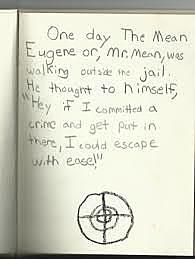 One day The Mean
Eugene or, Mr. Mean, was
walking outside the jail.
He thought to himself,
"Hey if I committed a
crime and get put in
there, I could escape
with ease!"